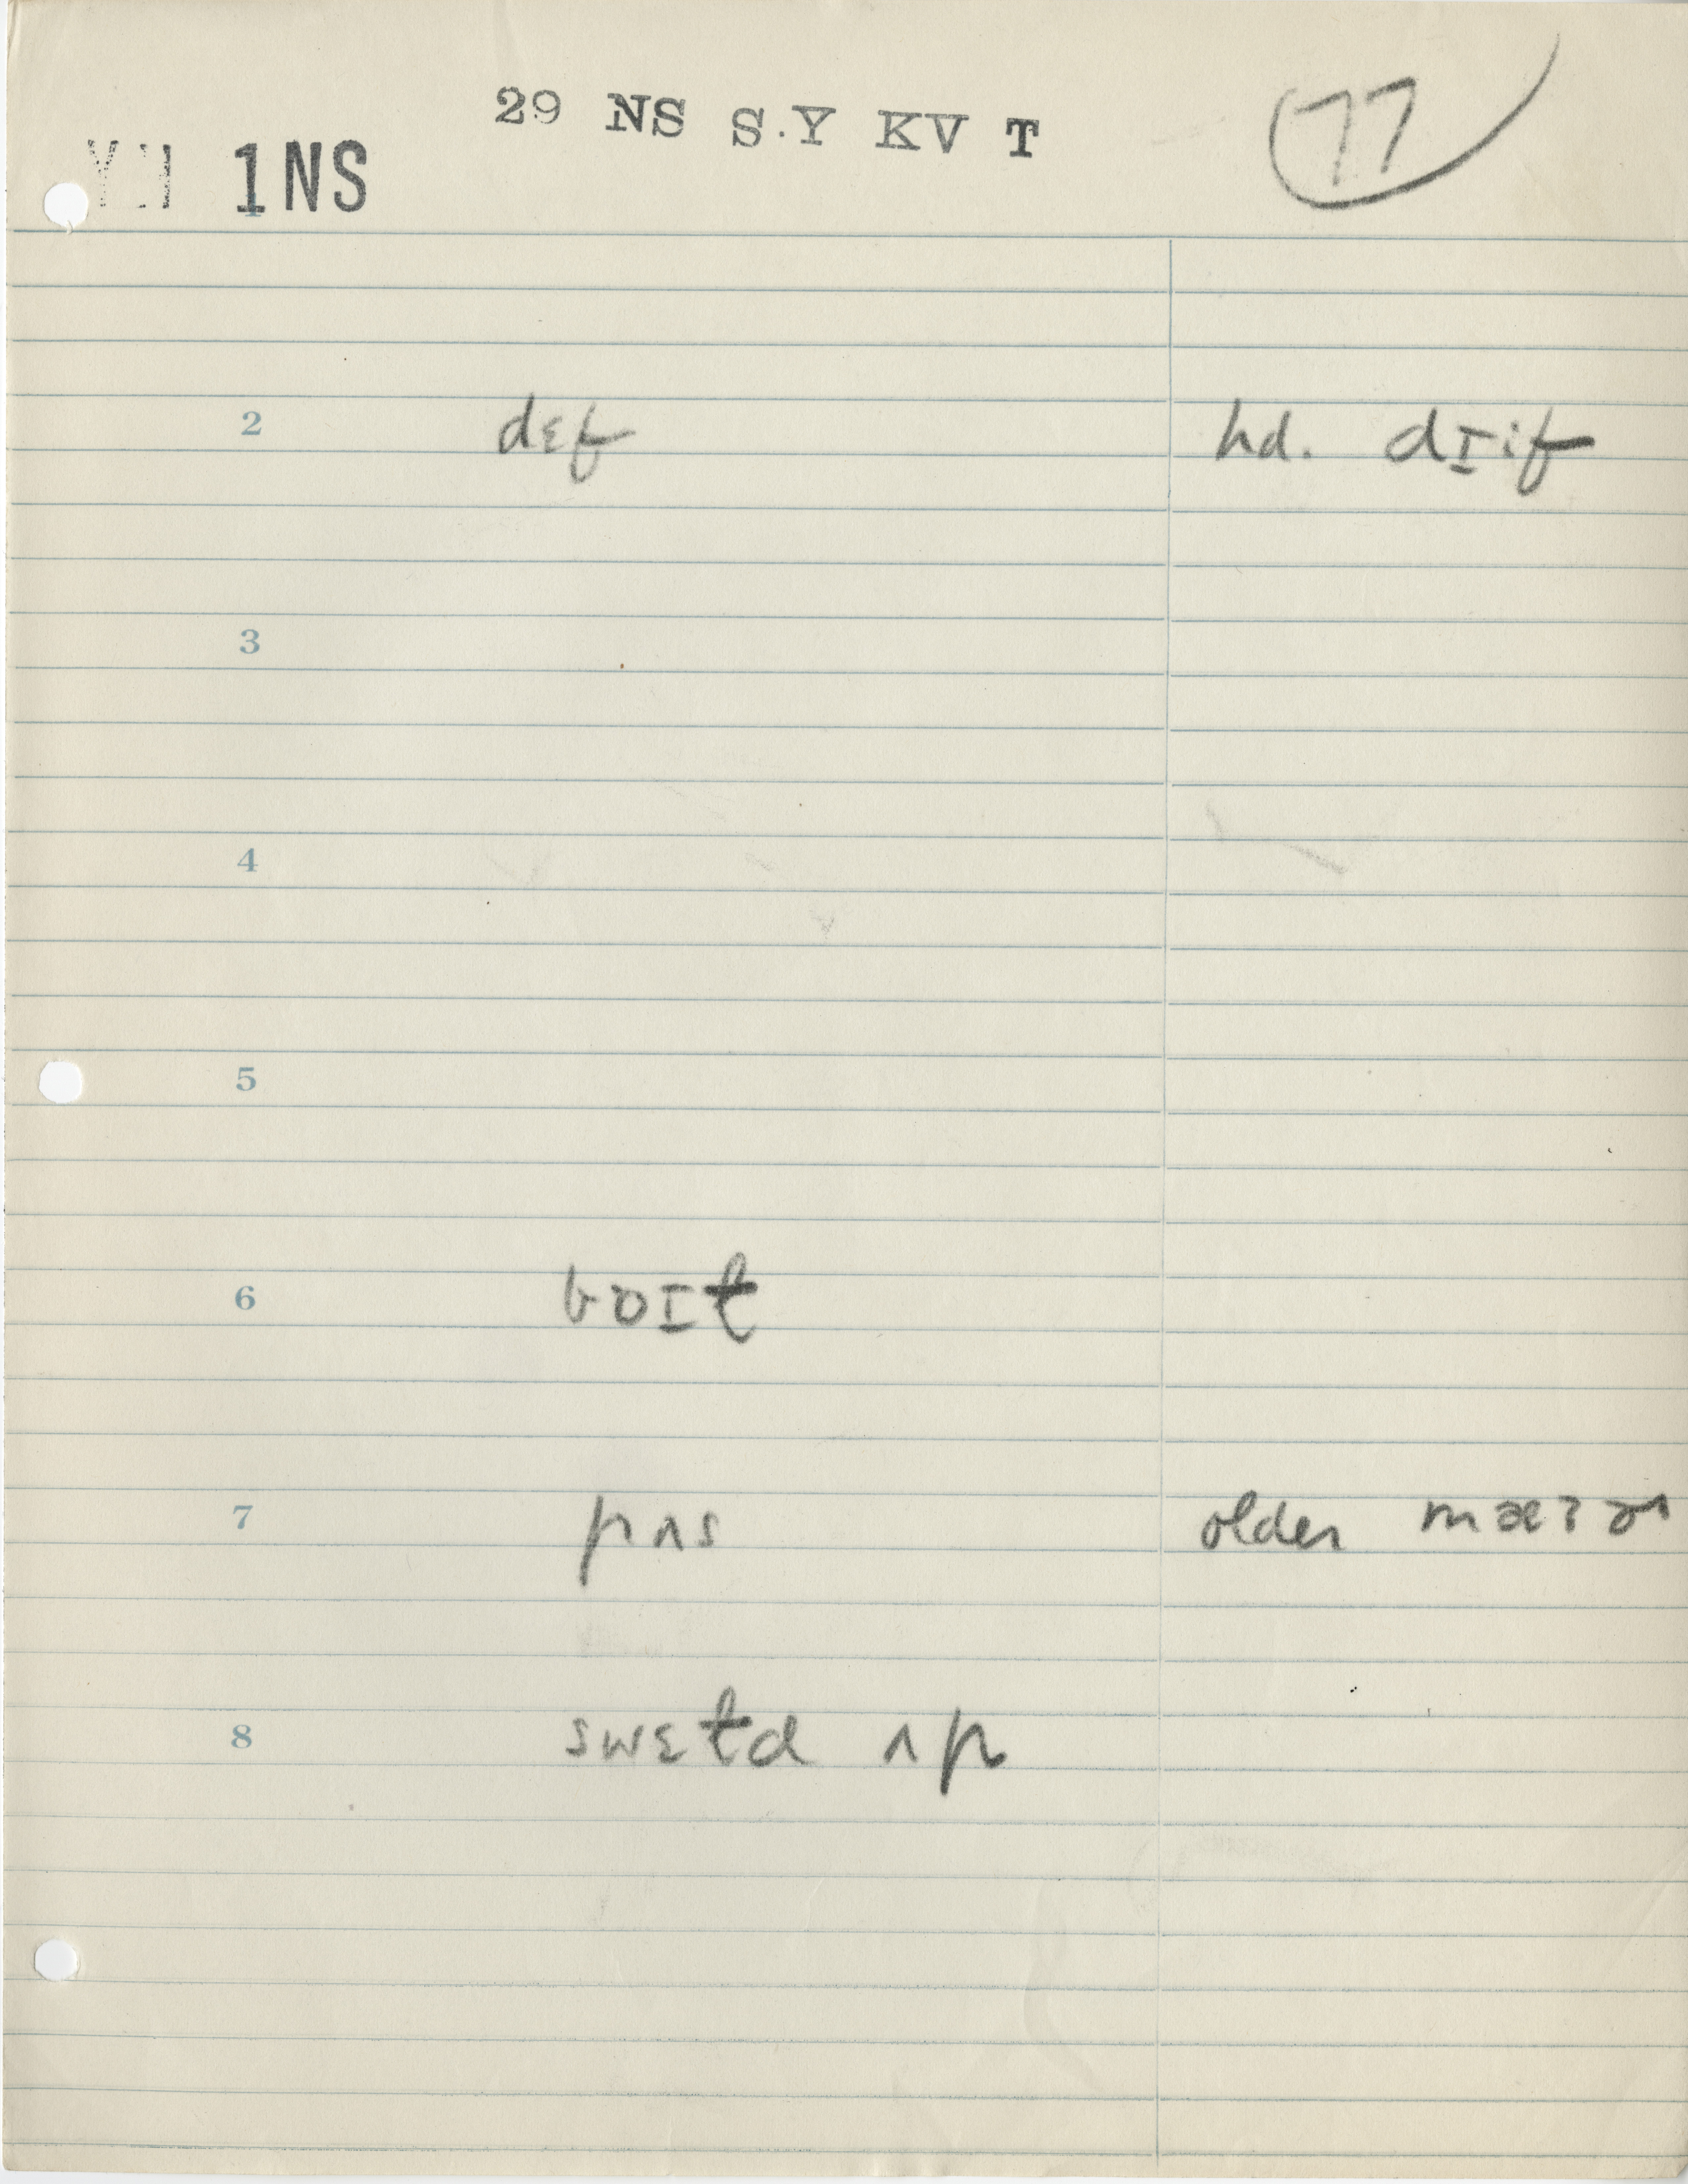 29 NS S.Y KV T
77
1NS
1
2 dɛf hd. dɪif
3
4
5
6 bɒɪt
7 pʌs older mæɾɚ
8 swɛtd ʌp